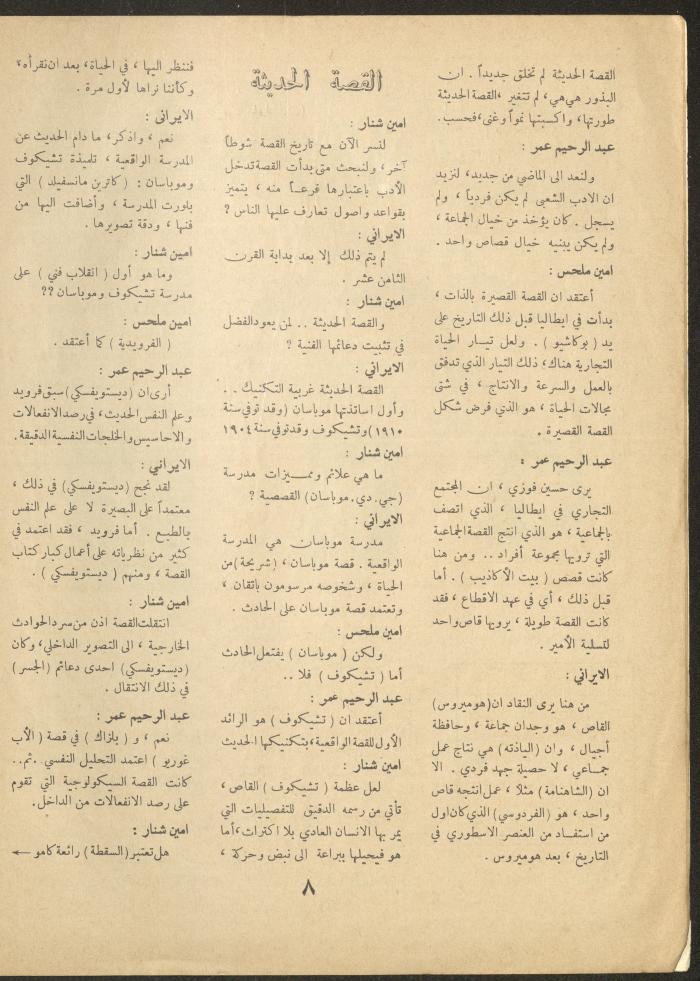 القصة الحديثة لم تخلق جديداً . ان
البذور هي هي، لم تتغير ،القصة الحديثة
طورتها، واكسبتها نمواً وغنى، فحسب.
عبد الرحيم عمر :
ولنعد الى الماضي من جديد، لنزيد
ان الادب الشعبي لم يكن فردياً ، ولم
يسجل . كان يؤخذ من خيال الجماعة ،
ولم يكن يبنيه خيال قصاص واحد .
امين ملحس :
أعتقد ان القصة القصيرة بالذات ،
بدأت في ايطاليا قبل ذلك التاريخ على
يد ( بوكاشيو ) . ولعل تيار الحياة
التجارية هناك، ذلك التيار الذي تدفق
بالعمل والسرعة والانتاج ، في شتى
مجالات الحياة ، هو الذي فرض شكل
القصة القصيرة .
عبد الرحيم عمر :
يرى حسين فوزي ، ان المجتمع
التجاري في ايطاليا ، الذي اتصف
بالجماعية ، هو الذي انتج القصة الجماعية
التي ترويها مجموعة أفراد .. ومن هنا
كانت قصص ( بيت الأكاذيب ) . أما
قبل ذلك ، أي في عهد الاقطاع ، فقد
كانت القصة طويلة ، يرويها قاص واحد
لتسلية الأمير .
الايراني :
من هنا يرى النقاد ان (هوميروس)
القاص ، هو وجدان جماعة ، وحافظة
أجيال ، وان (الياذته) هي نتاج عمل
جماعي ، لا حصيلة جهد فردي . الا
ان (الشاهنامة) مثلاً ، عمل انتجه قاص
واحد ، هو (الفردوسي) الذي كان اول
من استفاد من العنصر الاسطوري في
التاريخ ، بعد هوميروس .
القصة الحديثة
امين شنار :
لنسر الآن مع تاريخ القصة شوطاً
آخر، ولنبحث متى بدأت القصة تدخل
الأدب باعتبارها فرعاً منه ، يتميز
بقواعد واصول تعارف عليها الناس ؟
الايراني :
لم يتم ذلك إلا بعد بداية القرن
الثامن عشر .
امين شنار :
والقصة الحديثة .. لمن يعود الفضل
في تثبيت دعائمها الفنية ؟
الايراني :
القصة الحديثة غربية التكنيك . .
وأول اساتذتها موباسان ( وقد توفي سنة
١٩١٠) وتشيكوف وقد توفي سنة ١٩٠٤
امين شنار :
ما هي علائم ومميزات مدرسة
(جي . دي . موباسان) القصصية ؟
الايراني :
مدرسة موباسان هي المدرسة
الواقعية . قصة موباسان ، (شريحة) من
الحياة ، وشخوصه مرسومون باتقان ،
وتعتمد قصة موباسان على الحادث .
امين ملحس :
ولكن ( موباسان ) يفتعل الحادث
أما ( تشيكوف ) فلا ..
عبد الرحيم عمر :
أعتقد ان ( تشيكوف ) هو الرائد
الأول للقصة الواقعية، بتكنيكها الحديث
امين شنار :
لعل عظمة ( تشيكوف ) القاص ،
تأتي من رسمه الدقيق للتفصيليات التي
يمر بها الانسان العادي بلا اكتراث، أما
هو فيحيلها ببراعة الى نبض وحركة ،
فننظر اليها ، في الحياة، بعد ان نقرأه،
وكأننا نراها لأول مرة .
الايراني :
نعم ، واذكر، ما دام الحديث عن
المدرسة الواقعية ، تلميذة تشيكوف
وموباسان : ( كاترين مانسفيلد ) التي
بلورت المدرسة ، وأضافت اليها من
فنها ، ودقة تصويرها .
امين شنار :
وما هو أول ( انقلاب فني ) على
مدرسة تشيكوف وموباسان ؟؟
امين ملحس :
( الفرويدية ) كما أعتقد .
عبد الرحيم عمر :
أرى ان (ديستويفسكي) سبق فرويد
وعلم النفس الحديث، في رصد الانفعالات
والاحاسيس والخلجات النفسية الدقيقة.
الايراني :
لقد نجح (ديستويفسكي) في ذلك ،
معتمداً على البصيرة لا على علم النفس
بالطبع . أما فرويد ، فقد اعتمد في
كثير من نظرياته على أعمال كبار كتاب
القصة ، ومنهم ( ديستويفسكي ) .
امين شنار :
انتقلت القصة اذن من سرد الحوادث
الخارجية ، الى التصوير الداخلي، وكان
(ديستويفسكي) احدى دعائم (الجسر)
في ذلك الانتقال .
عبد الرحيم عمر :
نعم ، و ( بلزاك ) في قصة ( الأب
غوريو ) اعتمد التحليل النفسي . ثم..
كانت القصة السيكولوجية التي تقوم
على رصد الانفعالات من الداخل.
امين شنار :
هل تعتبر (السقطة) رائعة كامو ←
٨